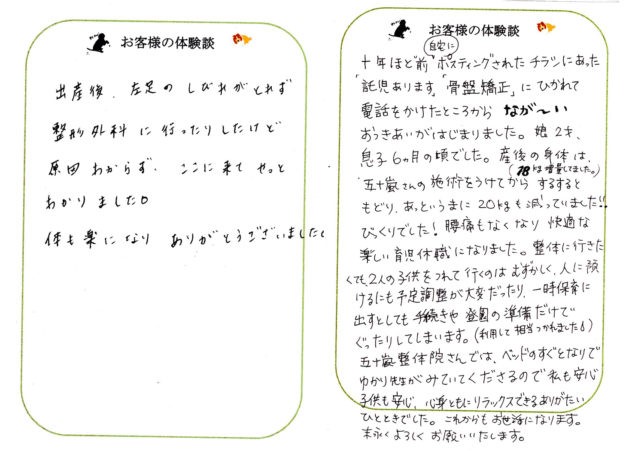 お客様の体験談
出産後、左足のしびれがとれず
整形外科に行ったりしたけど
原因わからず、ここに来てやっと
わかりました。
体も楽になりありがとうございました。
お客様の体験談
自宅に
十年ほど前ポスティングされたチラシにあった
「託児あります」「骨盤矯正」にひかれて
電話をかけたところから なが〜い
おつきあいがはじまりました。娘2才、
息子6ヵ月の頃でした。産後の身体は、
(18kg増量してました。)
五十嵐さんの施術をうけてから するすると
もどり、あっというまに20kgも減っていました!!
びっくりでした!腰痛もなくなり 快適な
楽しい育児休職になりました。整体に行きた
くても2人の子供をつれて行くのはむずかしく、人に預
けるにも予定調整が大変だったり、一時保育に
出すとしても手続きや登園の準備だけで
ぐったりしてしまいます。(利用して相当つかれました!)
五十嵐整体院さんでは、ベッドのすぐとなりで
ゆかり先生がみていてくださるので私も安心
子供も安心、心身ともにリラックスできるありがたい
ひとときでした。これからもお世話になります。
末永くよろしくお願いいたします。